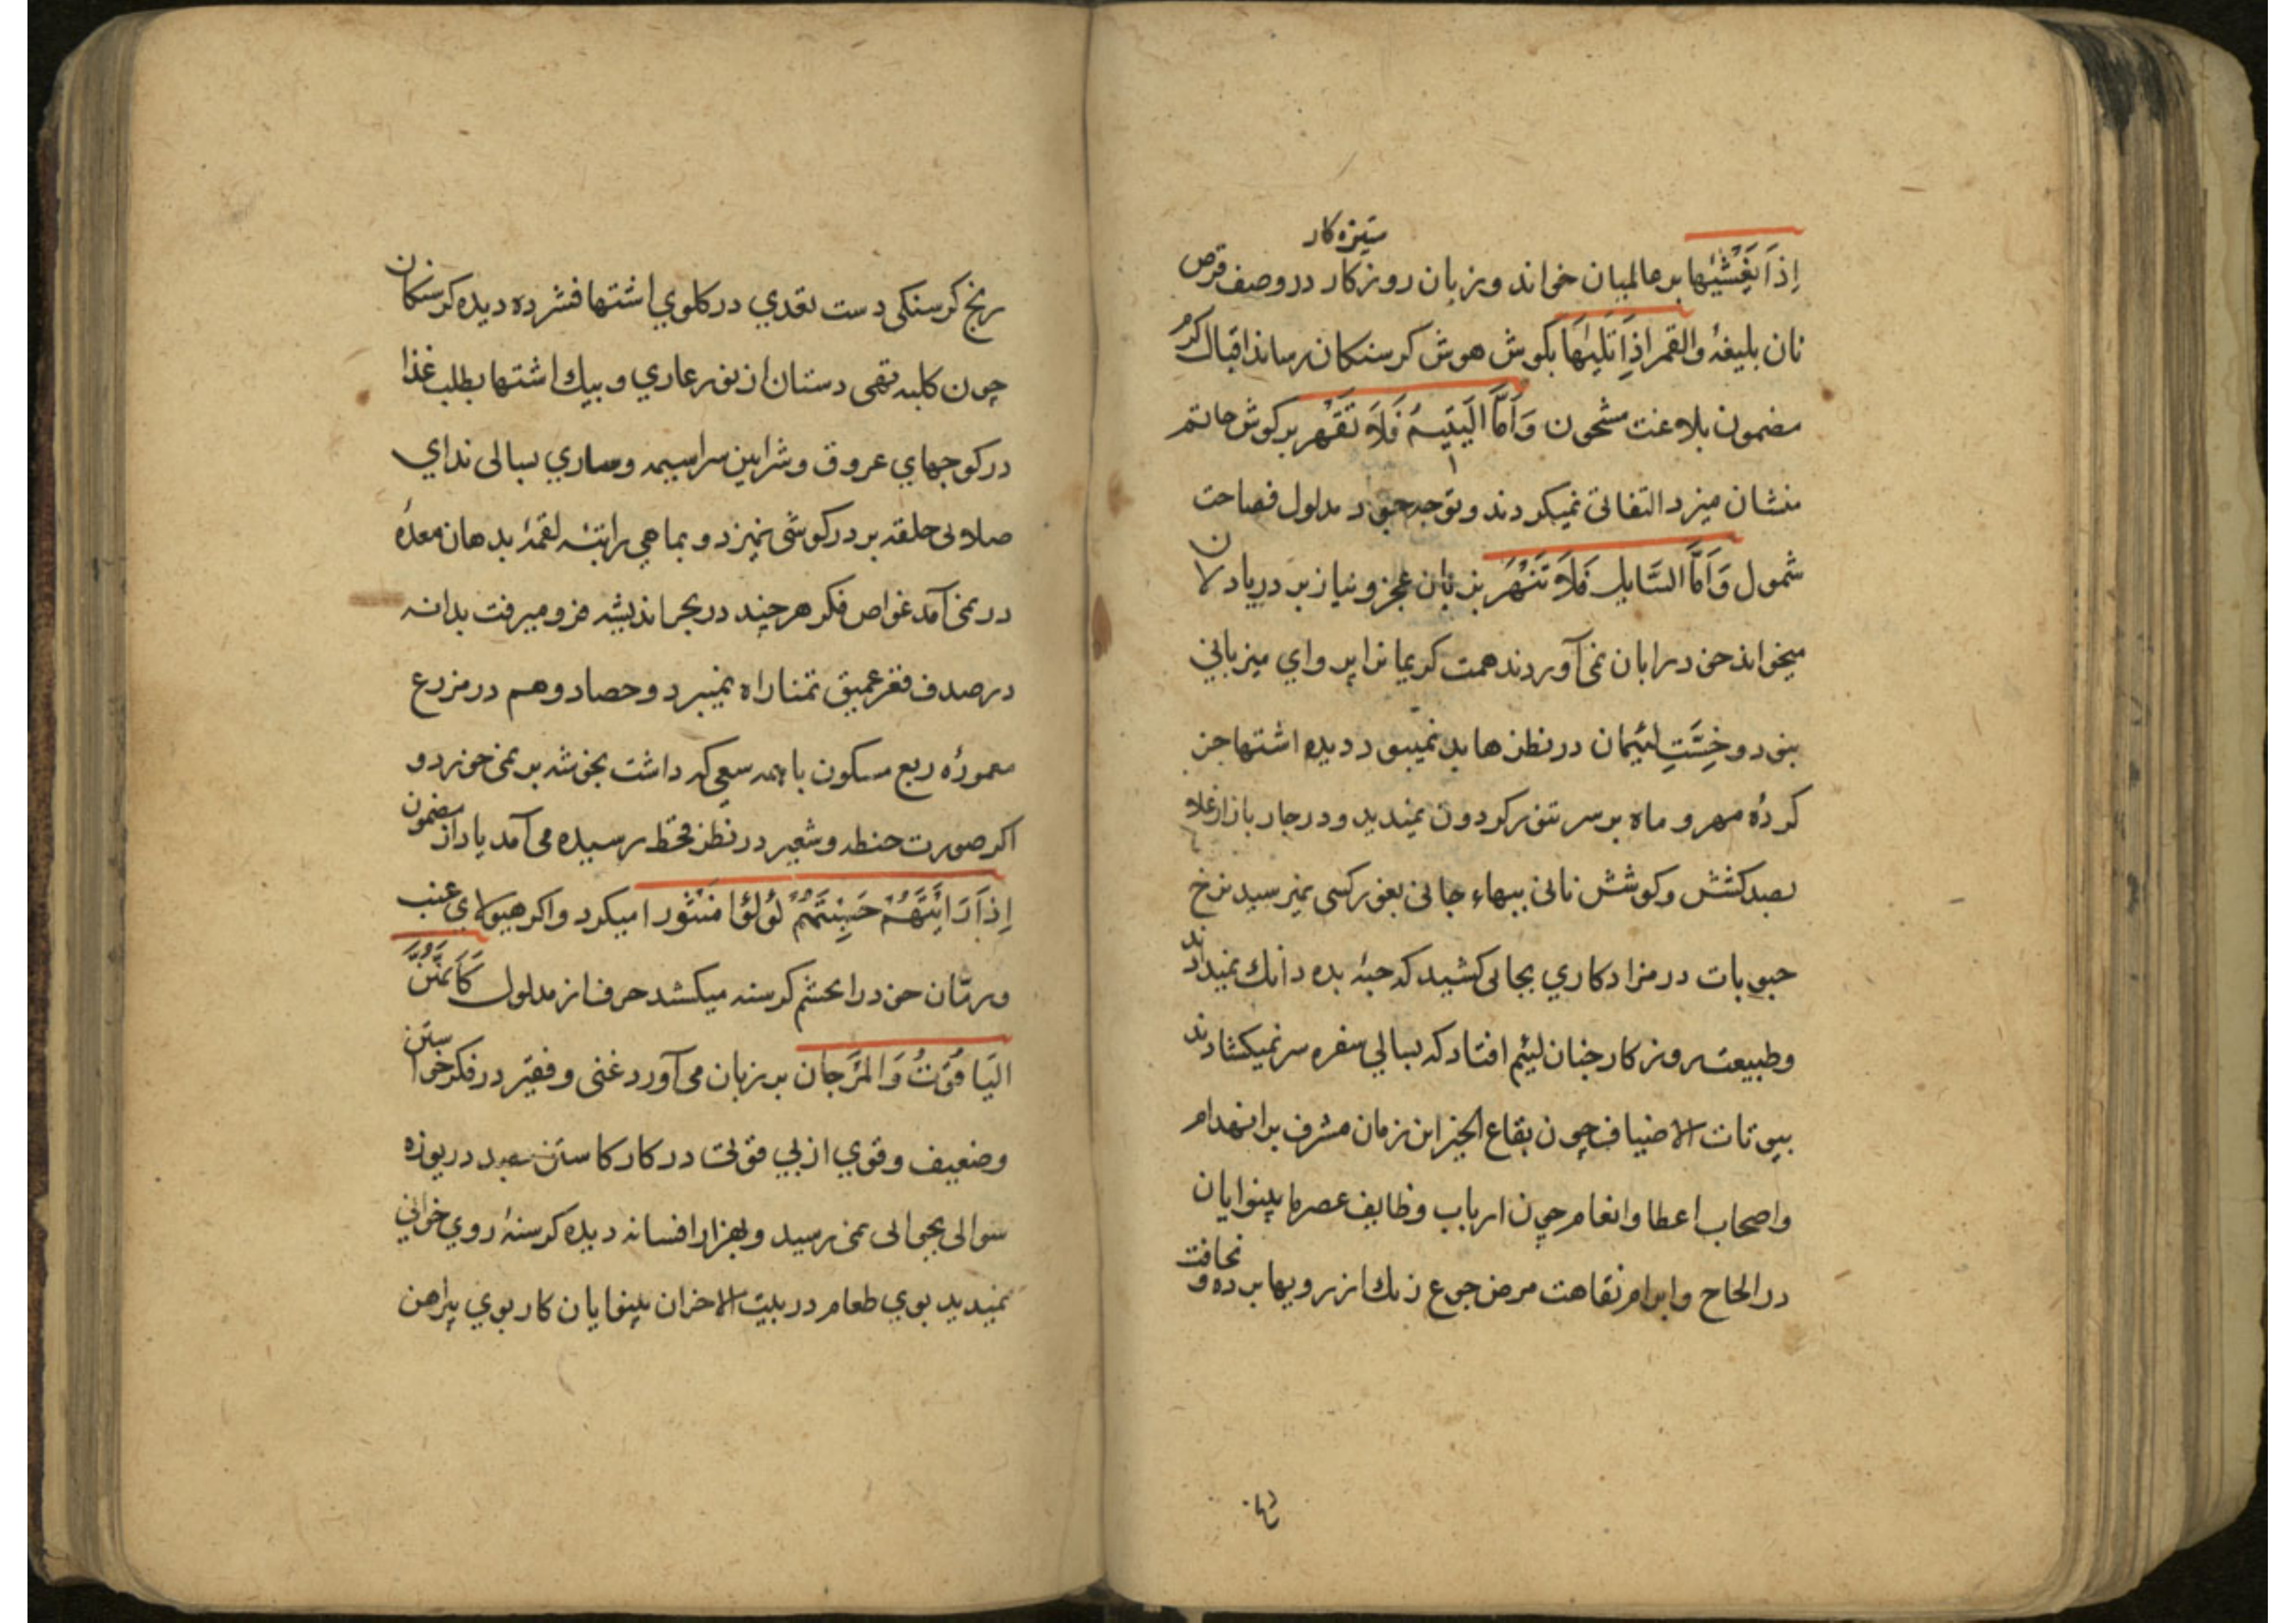 ستیزه کار
اِذَا یَغْشٰیها بر عالمیان خواند و زبان روزکار در وصف قرص
نان بلیغهٔ والقمر اِذَا تَلٰیهَا بکوش هوش کرسنکان رساند اقبال کرم
مضمون بلاغت مشحون وَاَمَّا الْیَتیمُ فَلَا تَقْهَر بر کوش حاتم
منشان میزد التفاتی نمیکردند و توجه جود مدلول فصاحت
شمول وَاَمَّا السَّایل فَلَا تَنْهَر بزبان عجز و نیاز بر دریا دلان
میخواند خود را بان نمی آوردند همت کریمانرا پروای میزبانی
نبود و خِسَّتِ لئیمان در نظرها بد نمینمود دیده اشتها جز
کردهٔ مهر و ماه بر سر تنور کردون نمیدید و در چار بازار غلا
بصد کشش و کوشش نانی ببهاء جانی بغور کسی نمیرسید نرخ
حبوبات در مزاد کاری بجائی کشید که حبهٔ بده دانک نمیدادند
وطبیعت روزکار چنان لئیم افتاد که بسالی سفره سر نمیکشادند
بیوتات الاضیاف چون بقاع الخیر این زمان مشرف بر انهدام
واصحاب اعطا وانعام چون ارباب وظایف عصر ما بینوایان
در الحاح وابرام نقاهت مرض جوع رنک از رویها برده و نحافت
رنج کرسنکی دست تعدی در کلوی اشتها فشرده دیده کرسنکان
چون کلبه تهی دستان از نور عاری و پیک اشتها بطلب غذا
در کوچهای عروق وشرایین سراسیمه وساری بسالی ندای
صلائی حلقه بر در کوشی نمیزد و بماهی راتبهٔ لقمهٔ بدهان معدهٔ
در نمی آمد غواص فکر هر چند در بحر اندیشه فرو میرفت بدانه
در صدف قعر عمیق تمنا راه نمیبرد و حصاد وهم در مزرع
معمورهٔ ربع مسکون با همه سعی که داشت بخوشه بر نمی خورد و
اکر صورت حنطه وشعیر در نظر قحط رسیده می آمد یاد از مضمون
اِذَا رَاَیْتَهُمْ حَسِبْتَهُمْ لُؤلُؤا مَنْثُورا میکرد واکر هیولای عنب
ورمّان خود را بچشم کرسنه میکشد حرف از مدلول کَاَنَّهُنَّ
الیَاقُوْتُ وَالمَرْجَان بر زبان می آورد غنی وفقیر در فکر خواستن
وضعیف وقوی از بی قوتی در کار کاستن بصد دریوزه
سوالی بجوالی نمی رسید وبهزار افسانه دیده کرسنهٔ روی خوانی
نمیدید بوی طعام در بیت الاحزان بینوایان کار بوی پیراهن